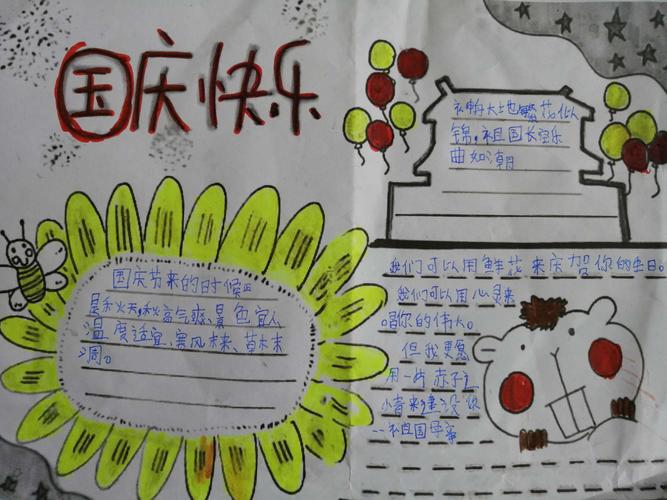 国庆快乐
国庆节来的时候正
是秋天,秋高气爽、景色宜人
温度适宜、寒风未来、草木未
凋。
大地繁花似
锦,祖国长空乐
曲如潮
我们可以用鲜花来庆贺你的生日。
我们可以用心灵来
唱你的伟大。
但我更愿
用一片赤子之
情来建设你
--祖国母亲